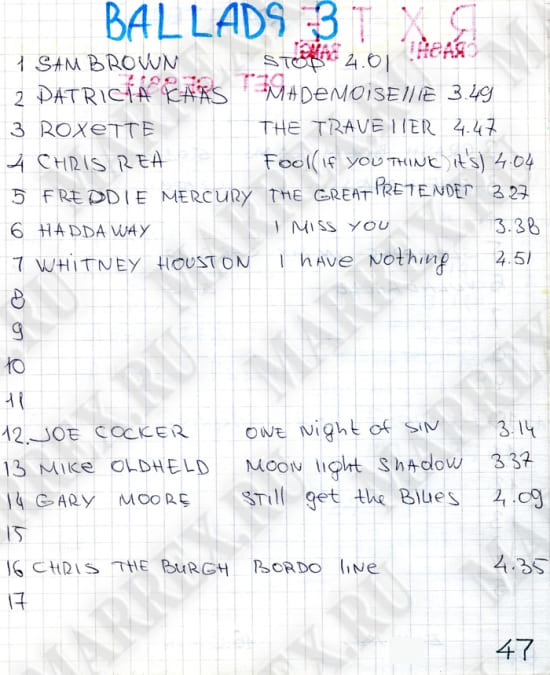 BALLADS 3
1 SAM BROWN STOP 4.01
2 PATRICIA KAAS MADEMOISEllIE 3.49
3 ROXETTE THE TRAVEllER 4.47
4 CHRIS REA Fool (IF YOU THINK) it's) 4.04
5 FREDDIE MERCURY THE GREAT PRETENDET 3.27
6 HADDAWAY I MISS YOU 3.38
7 WHITNEY HOUSTON I hAVE Nothing 4.51
8
9
10
11
12. JOE COCKER ONE Night of SIN 3.14
13 MIKE OLDHELD MOON light Shadow 3.37
14 GARY MOORE Still get the BluES 4.09
15
16 CHRIS THE BURGH BORDO liNE 4.35
17
47
MARREX.RU